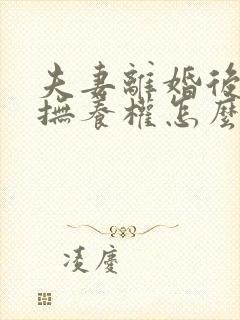 夫妻離婚後
撫養權怎麼
凌慶